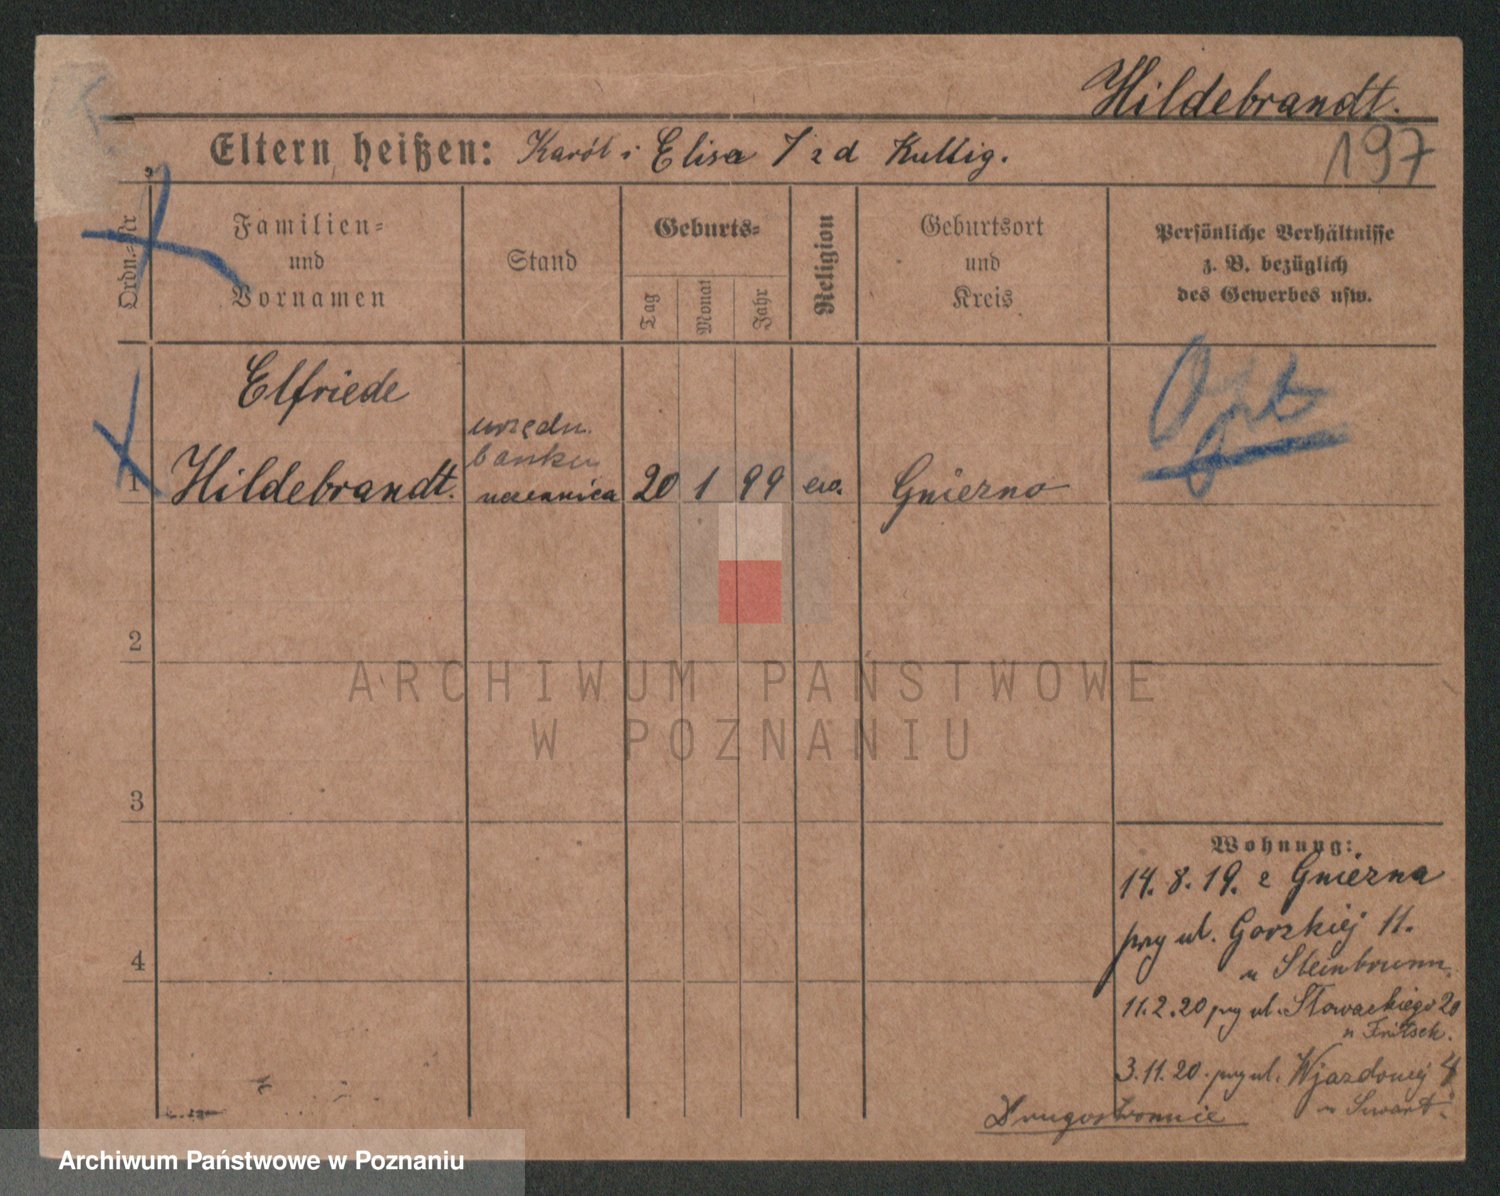 Hildebrandt.
197
Eltern heißen: Karól i Elisa I z d Kuttig.
Ordn.=Nr
Familien=
und
Vornamen
Stand
Geburts=
Tag
Monat
Jahr
Religion
Geburtsort
und
Kreis
Persönliche Verhältnisse
z. B. bezüglich
des Gewerbes usw.
Elfriede
Hildebrandt.
urzędn.
banku
uczennica
1
20 1 99 ew. Gniezno
Opt
2
ARCHIWUM PAŃSTWOWE
W POZNANIU
3
Wohnung:
14. 8. 19. z Gniezna
przy ul. Gorzkiej 11.
u Steinbrunn.
4
11.2.20 przy ul. Słowackiego 20
u Fritsch.
3.11.20. przy ul. Wjazdowej 4
u Swart.
Drugostronnie
Archiwum Państwowe w Poznaniu